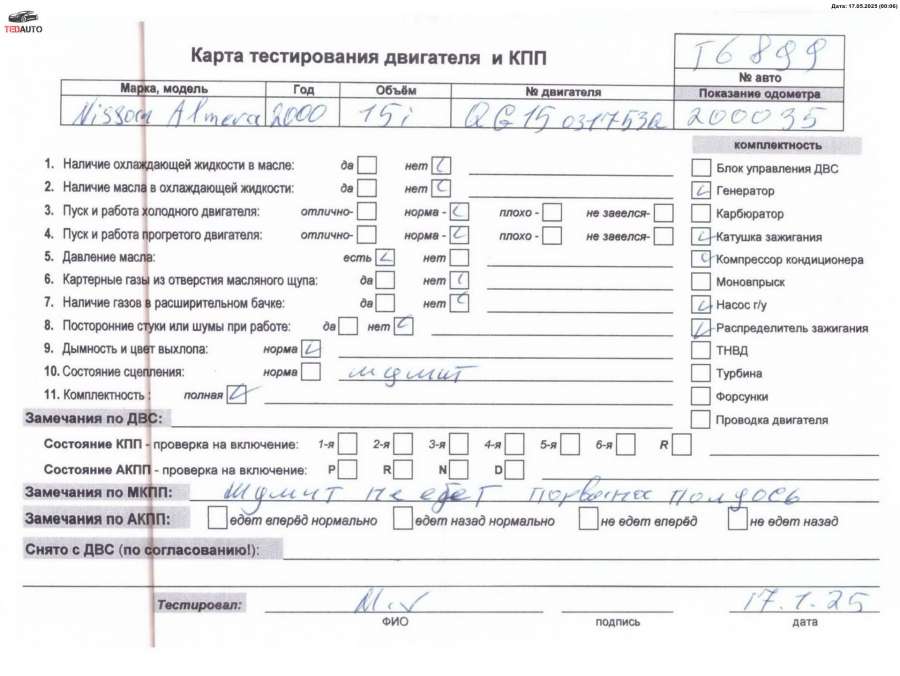 Дата: 17.05.2025 (00:06)
TEDAUTO
Карта тестирования двигателя и КПП
T6899
№ авто
Марка, модель Год Объём № двигателя Показание одометра
Nissan Almera 2000 15i QG15 031753a 200035
комплектность
1. Наличие охлаждающей жидкости в масле: да нет
2. Наличие масла в охлаждающей жидкости: да нет
3. Пуск и работа холодного двигателя: отлично- норма - плохо - не завелся-
4. Пуск и работа прогретого двигателя: отлично- норма - плохо - не завелся-
5. Давление масла: есть нет
6. Картерные газы из отверстия масляного щупа: да нет
7. Наличие газов в расширительном бачке: да нет
8. Посторонние стуки или шумы при работе: да нет
9. Дымность и цвет выхлопа: норма
10. Состояние сцепления: норма шумит
11. Комплектность : полная
Блок управления ДВС
Генератор
Карбюратор
Катушка зажигания
Компрессор кондиционера
Моновпрыск
Насос г/у
Распределитель зажигания
ТНВД
Турбина
Форсунки
Проводка двигателя
Замечания по ДВС:
Состояние КПП - проверка на включение: 1-я 2-я 3-я 4-я 5-я 6-я R
Состояние АКПП - проверка на включение: P R N D
Замечания по МКПП: Шумит не едет полуось
Замечания по АКПП: едет вперёд нормально едет назад нормально не едет вперёд не едет назад
Снято с ДВС (по согласованию!):
Тестировал: 17.1.25
ФИО подпись дата